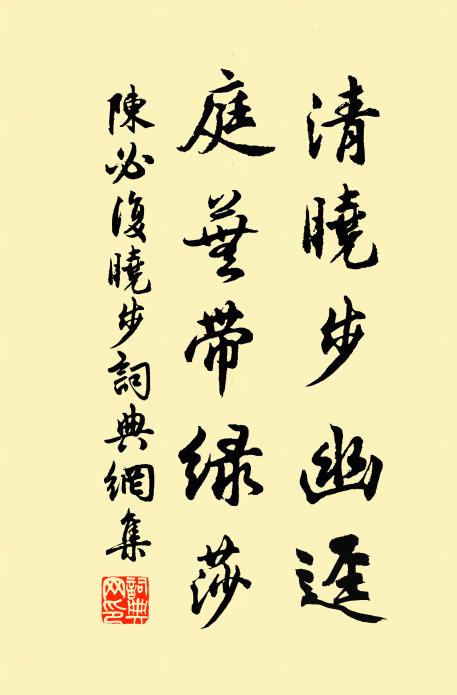 清曉步幽逕
庭蕪帶綠莎
陳必復曉步詞典網集
詞典网印